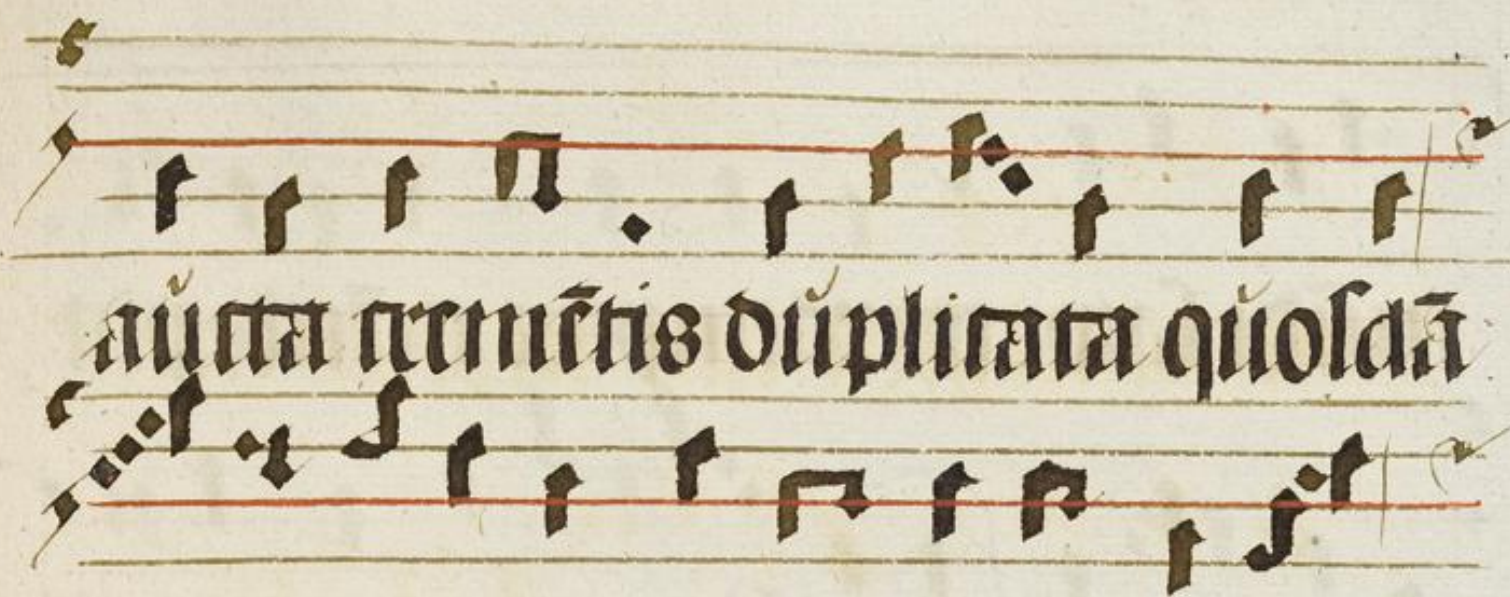 aucta cremētis duplicata quosdā